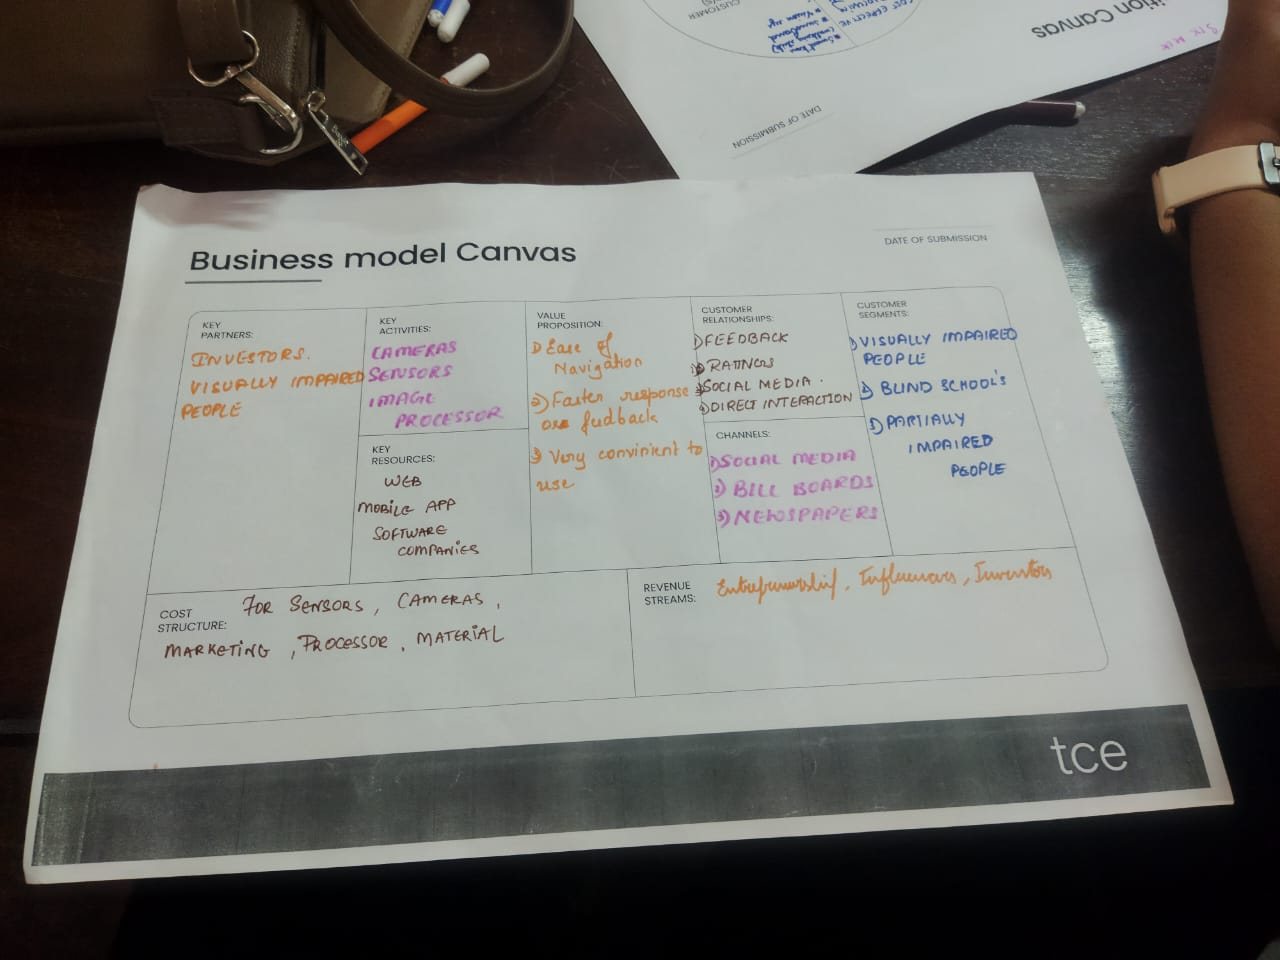 Business model Canvas
DATE OF SUBMISSION
KEY
PARTNERS:
INVESTORS.
VISUALLY IMPAIRED
PEOPLE
KEY
ACTIVITIES:
CAMERAS
SENSORS
IMAGE
PROCESSOR
KEY
RESOURCES:
WEB
MOBILE APP
SOFTWARE
COMPANIES
VALUE
PROPOSITION:
1) Ease of
Navigation
2) Faster response
feedback
3) Very convinient to
use
CUSTOMER
RELATIONSHIPS:
1) FEEDBACK
2) RATINGS
3) SOCIAL MEDIA.
4) DIRECT INTERACTION
CHANNELS:
1) SOCIAL MEDIA
2) BILL BOARDS
3) NEWSPAPERS
CUSTOMER
SEGMENTS:
1) VISUALLY IMPAIRED
PEOPLE
2) BLIND SCHOOL'S
3) PARTIALLY
IMPAIRED
PEOPLE
COST
STRUCTURE:
FOR SENSORS, CAMERAS,
MARKETING, PROCESSOR, MATERIAL
REVENUE
STREAMS:
Entrepreneurship, Influencers, Investors
tce
ition Canvas
DATE OF SUBMISSION
CUSTOMER
COST EFFECTIVE